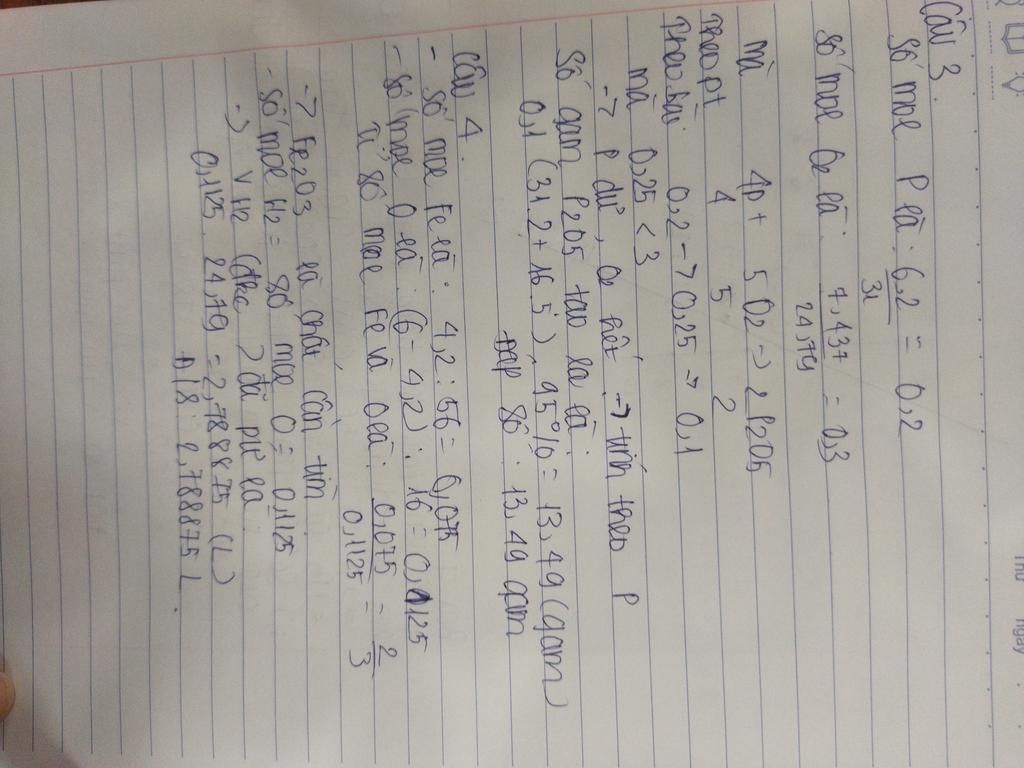 Câu 3.
Số moe P là: 6,2 = 0,2
31
số moe O2 là: 7,437 = 0,3
24,79
mà 4P + 5O2 -> 2P2O5
Theo pt 4 5 2
Theo bài: 0,2 -> 0,25 -> 0,1
mà 0,25 < 3
-> P dư, O2 hết -> tính theo P
Số gam P2O5 tạo la là:
0,1 (31,2 + 16.5), 95% = 13,49 (gam)
đáp số: 13,49 gam
Câu 4.
- số moe Fe là: 4,2 : 56 = 0,075
- số moe O là: (6 - 4,2) : 16 = 0,1125
Tỉ số moe Fe và O là: 0,075 = 2
0,1125 3
-> Fe2O3 là chất cần tìm
- số moe H2 = số moe O = 0,1125
-> V H2 (đkc) đã pư là:
0,1125 . 24,79 = 2,788875 (L)
Đ/S: 2,788875 L
Thứ ngày